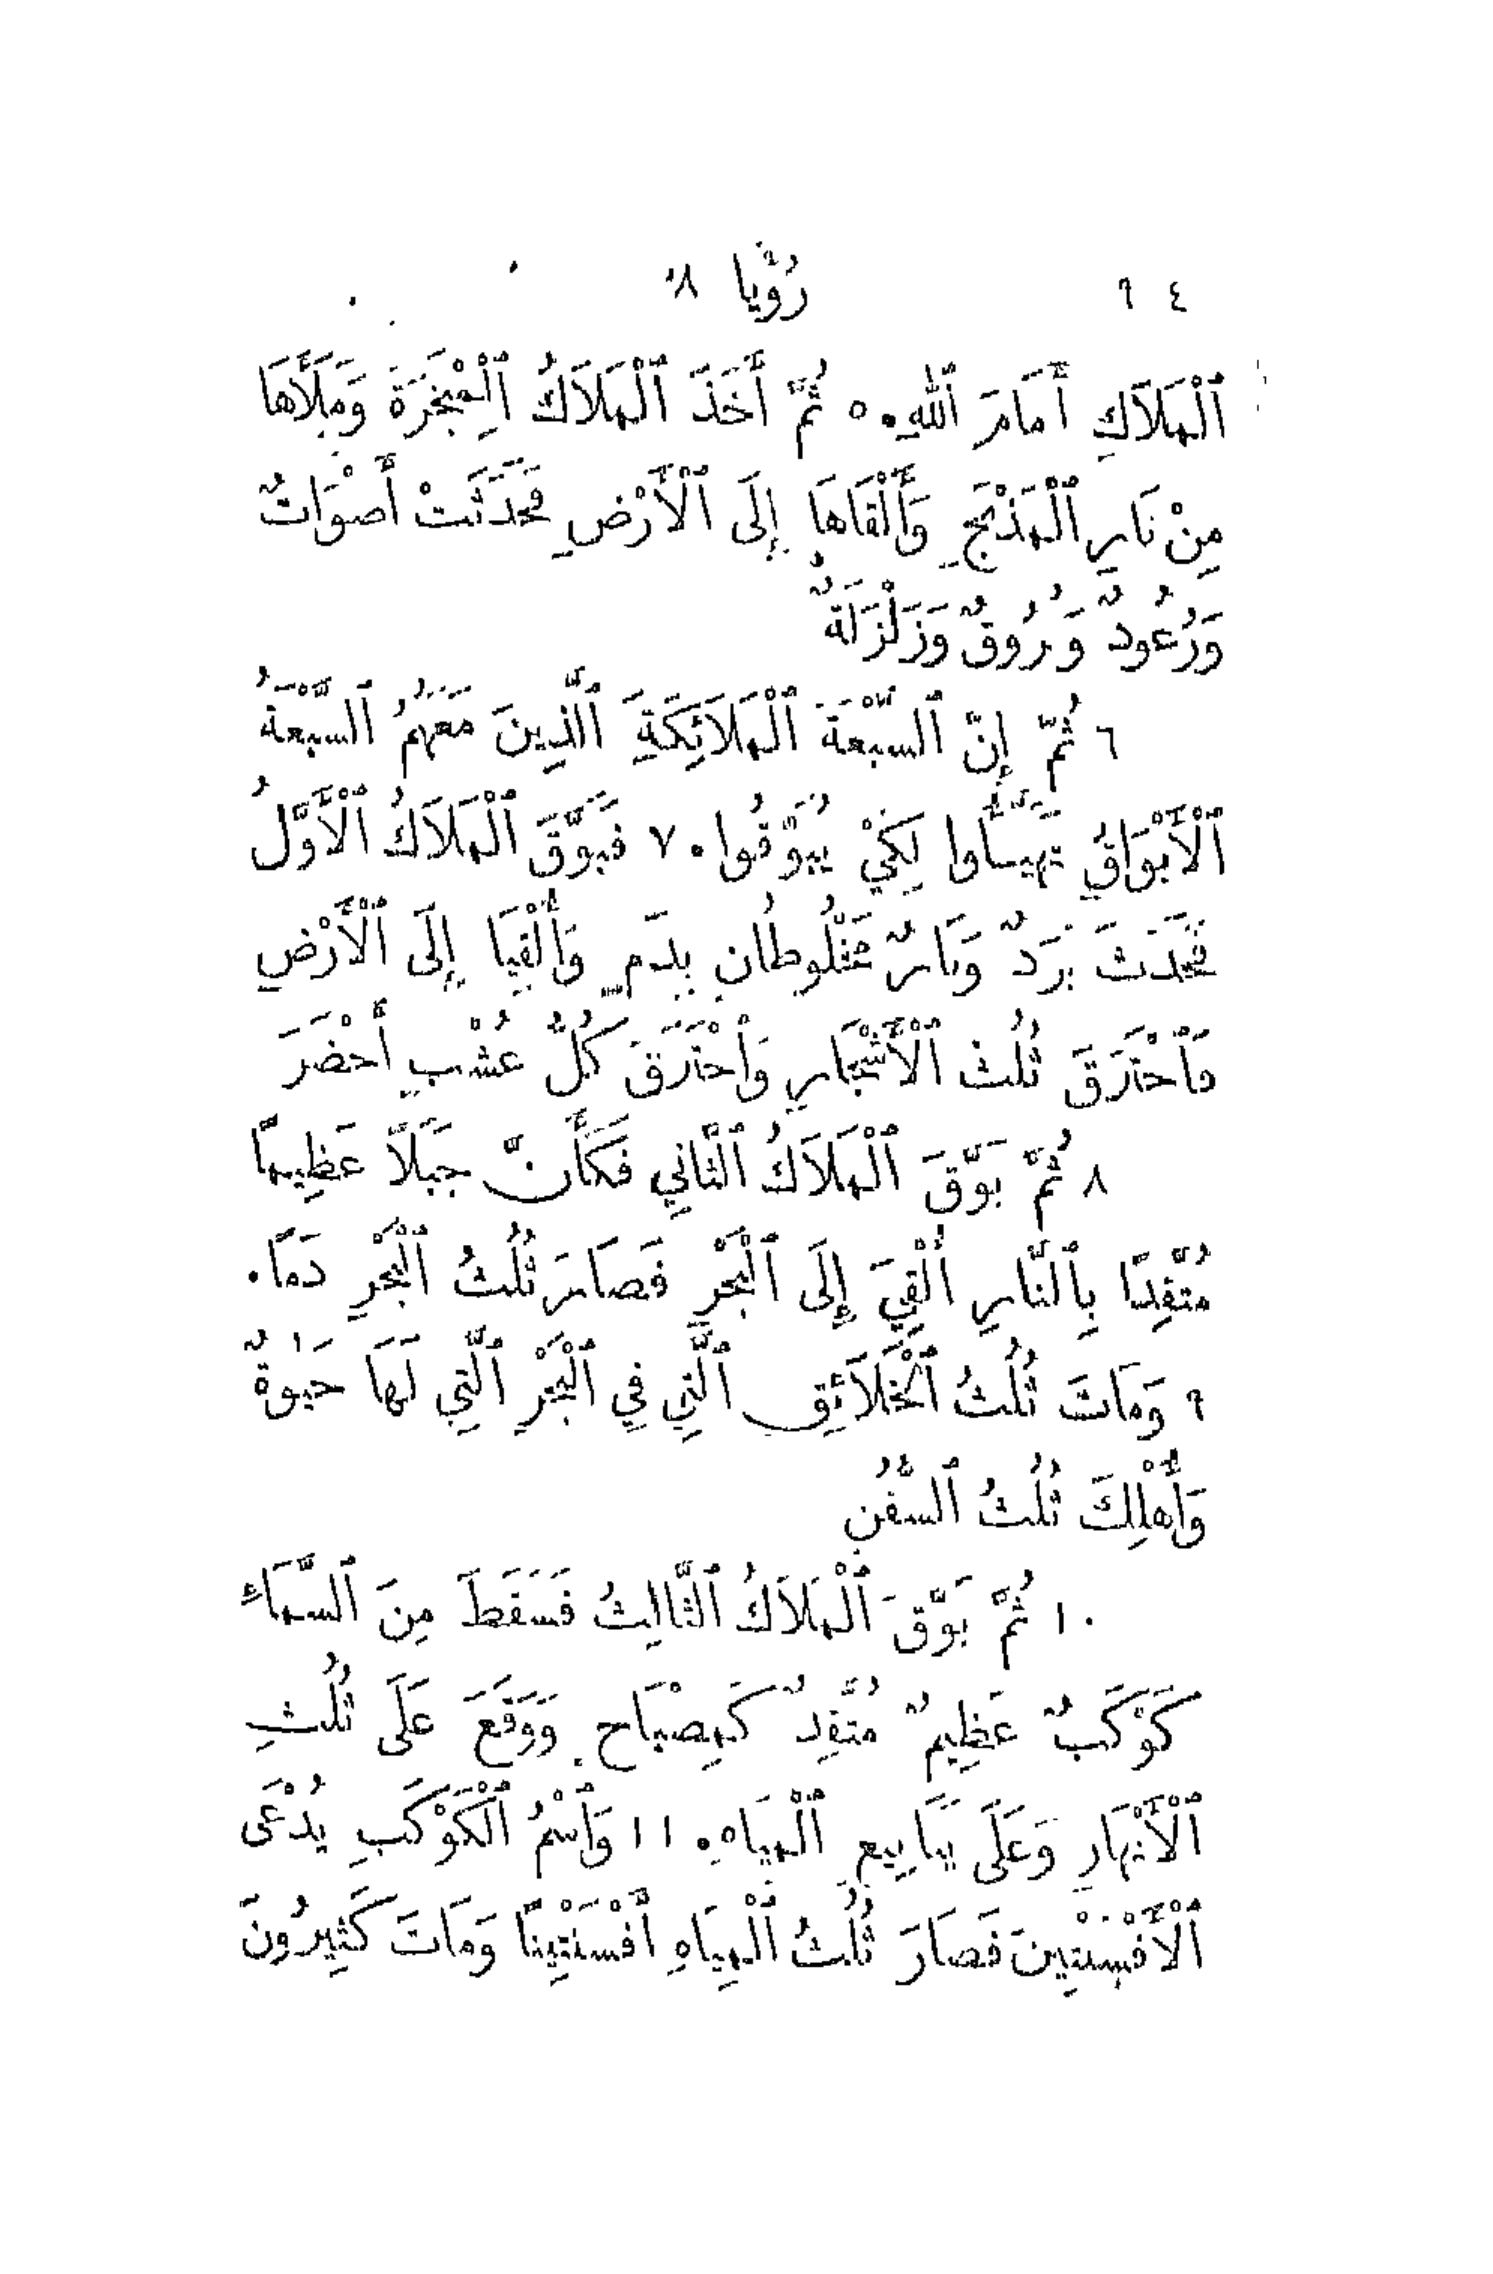 ٦٤ رُؤْيا ٨
ٱلْمَلَاكِ أَمَامَ ٱللهِ. ٥ ثُمَّ أَخَذَ ٱلْمَلَاكُ ٱلْمِبْخَرَةَ وَمَلَأَهَا
مِنْ نَارِ ٱلْمَذْبَحِ وَأَلْقَاهَا إِلَى ٱلْأَرْضِ فَحَدَثَتْ أَصْوَاتٌ
وَرُعُودٌ وَبُرُوقٌ وَزَلْزَلَةٌ
٦ ثُمَّ إِنَّ ٱلسَّبْعَةَ ٱلْمَلَائِكَةِ ٱلَّذِينَ مَعَهُمُ ٱلسَّبْعَةُ
ٱلْأَبْوَاقِ تَهَيَّأُوا لِكَيْ يُبَوِّقُوا. ٧ فَبَوَّقَ ٱلْمَلَاكُ ٱلْأَوَّلُ
فَحَدَثَ بَرَدٌ وَنَارٌ مَخْلُوطَانِ بِدَمٍ وَأُلْقِيَا إِلَى ٱلْأَرْضِ
فَٱحْتَرَقَ ثُلُثُ ٱلْأَشْجَارِ وَٱحْتَرَقَ كُلُّ عُشْبٍ أَخْضَرَ
٨ ثُمَّ بَوَّقَ ٱلْمَلَاكُ ٱلثَّانِي فَكَأَنَّ جَبَلًا عَظِيمًا
مُتَّقِدًا بِٱلنَّارِ أُلْقِيَ إِلَى ٱلْبَحْرِ فَصَارَ ثُلُثُ ٱلْبَحْرِ دَمًا.
٩ وَمَاتَ ثُلُثُ ٱلْخَلَائِقِ ٱلَّتِي فِي ٱلْبَحْرِ ٱلَّتِي لَهَا حَيٰوةٌ
وَأُهْلِكَ ثُلُثُ ٱلسُّفُنِ
١٠ ثُمَّ بَوَّقَ ٱلْمَلَاكُ ٱلثَّالِثُ فَسَقَطَ مِنَ ٱلسَّمَاءِ
كَوْكَبٌ عَظِيمٌ مُتَّقِدٌ كَمِصْبَاحٍ وَوَقَعَ عَلَى ثُلُثِ
ٱلْأَنْهَارِ وَعَلَى يَنَابِيعِ ٱلْمِيَاهِ. ١١ وَٱسْمُ ٱلْكَوْكَبِ يُدْعَى
ٱلْأَفْسِنْتِينَ فَصَارَ ثُلُثُ ٱلْمِيَاهِ أَفْسَنْتِينًا وَمَاتَ كَثِيرُونَ